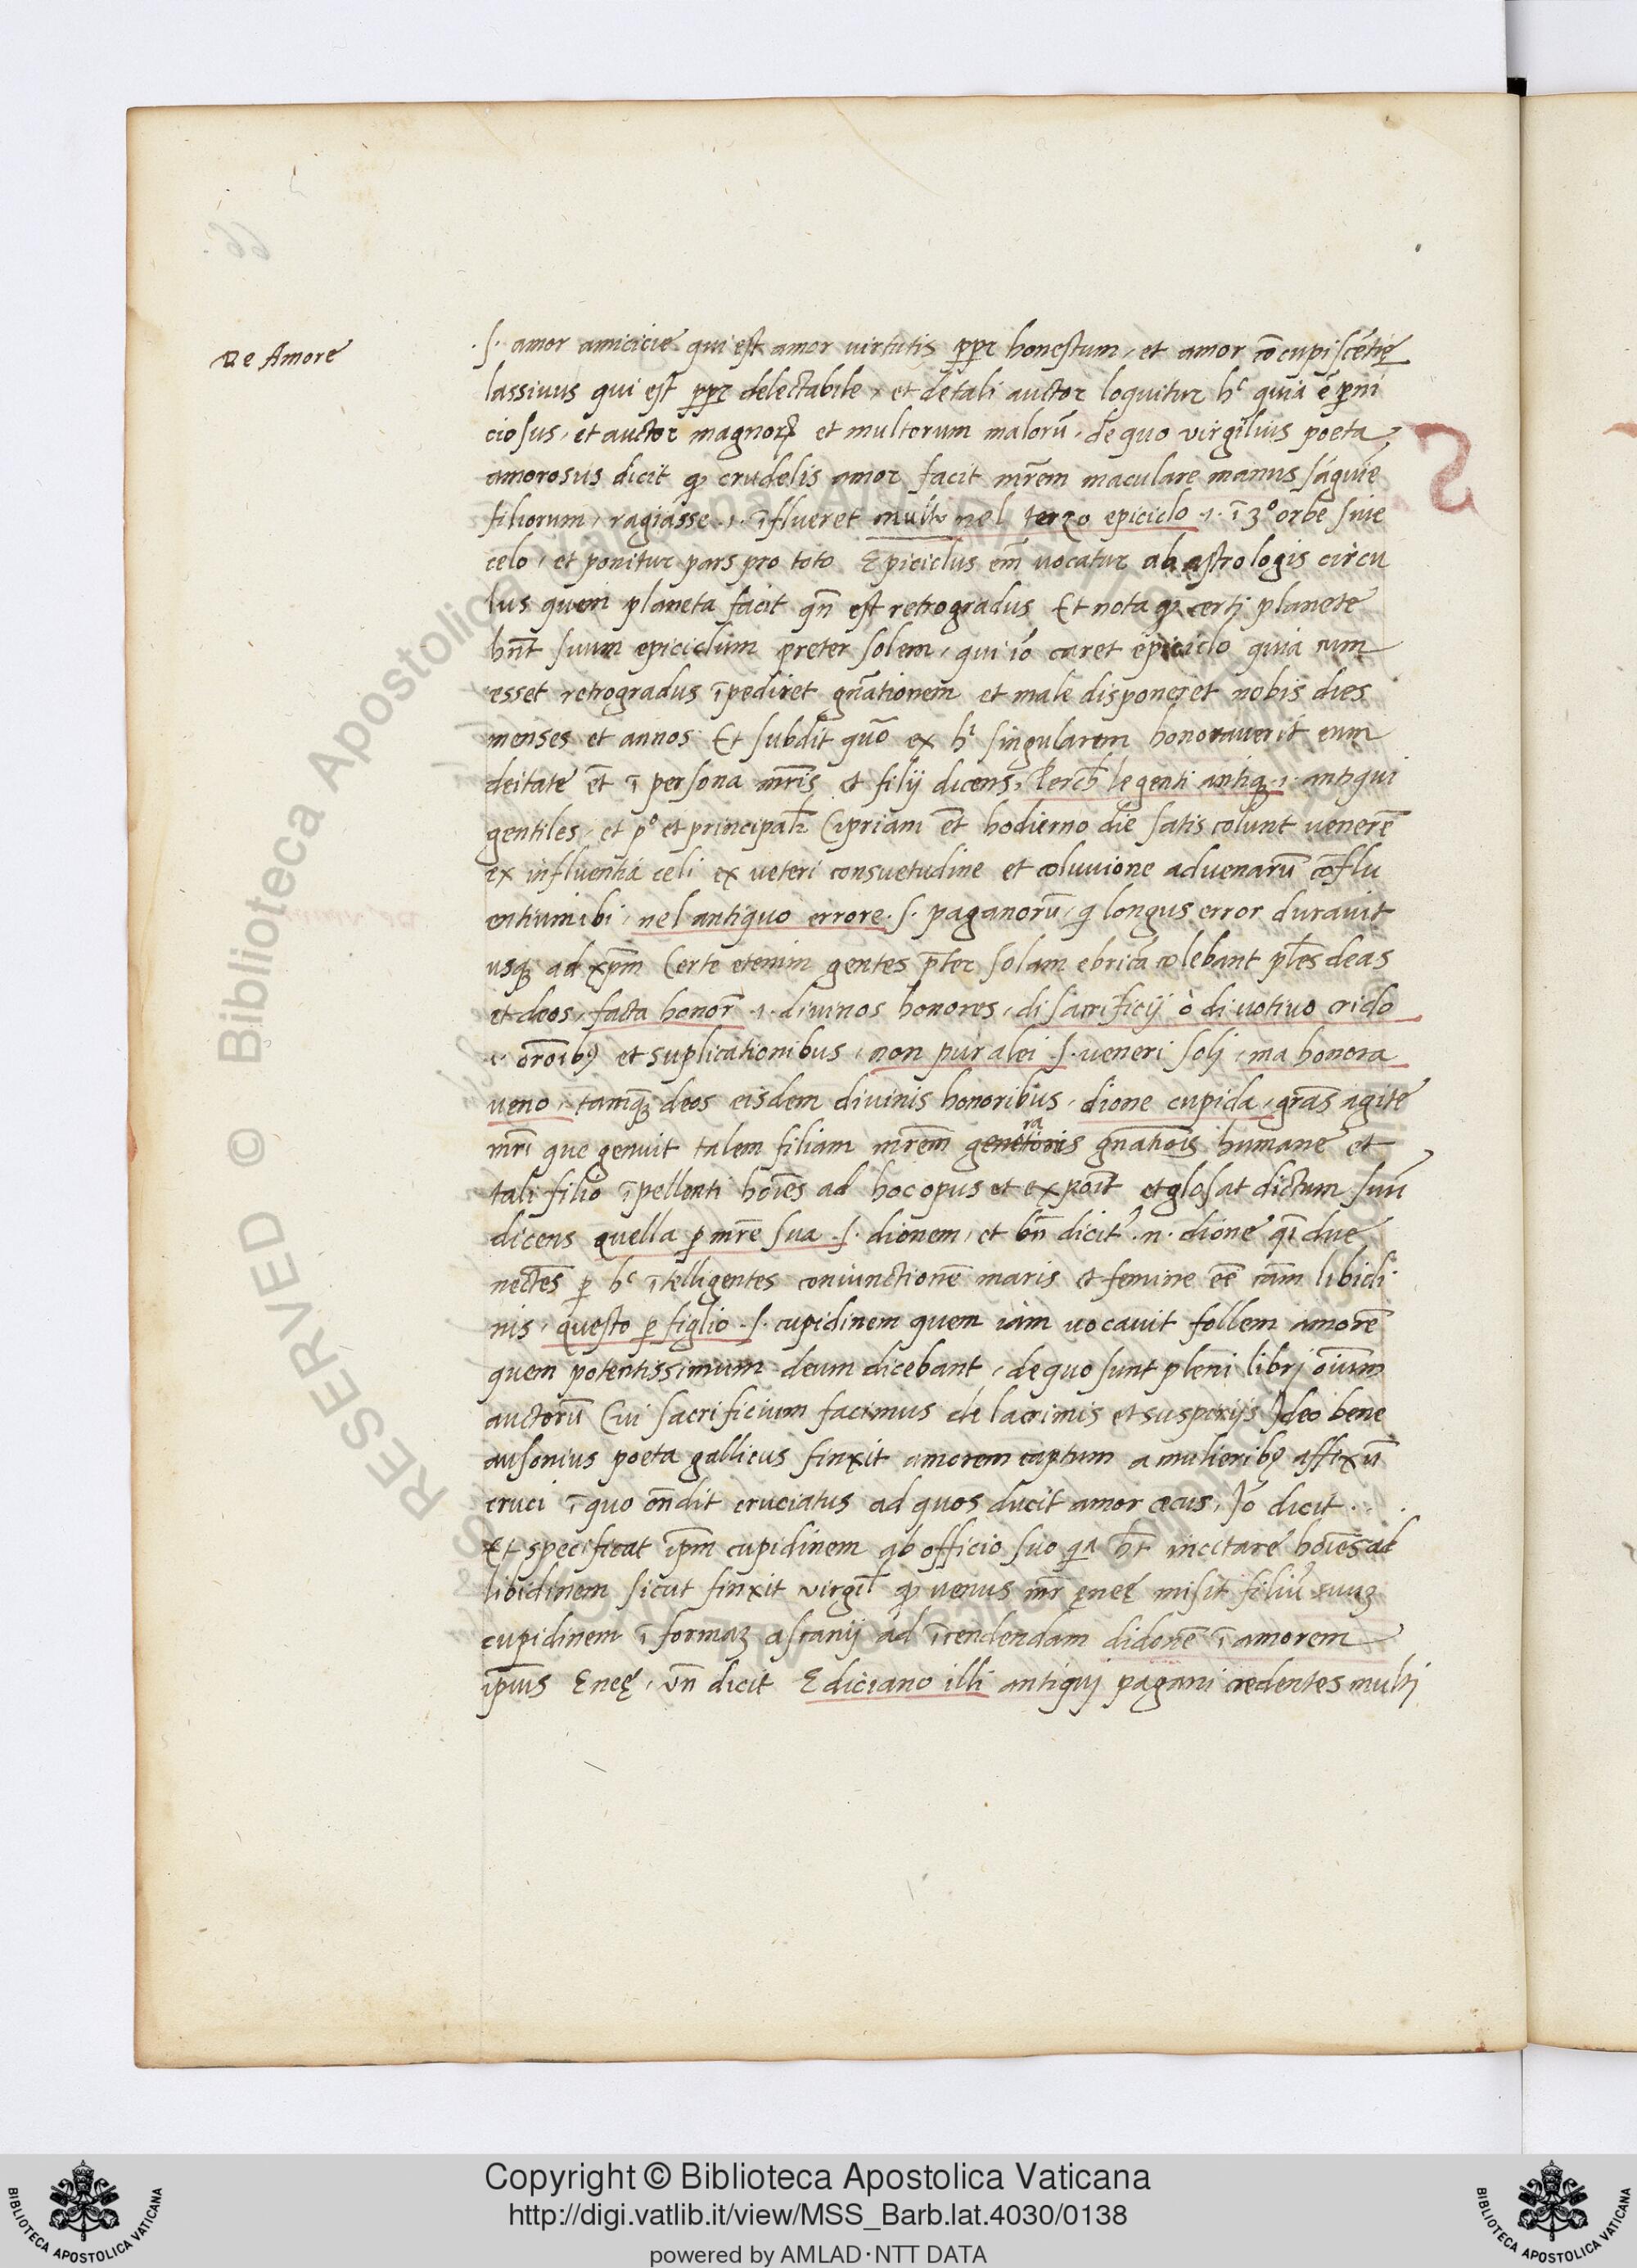 De Amore
.s. amor amicicie qui est amor virtutis ꝓpt honestum, et amor cōcupiscētię
lassivus qui est ꝓpt delectabile, et de tali auctor loquitur hͨ quia ē ꝑni
ciosus, et auctor magnoꝝ et multorum malorū, de quo virgilius poeta,
amorosus dicit ꝙ crudelis amor facit mr̄em maculare manus sāguīe
filiorum, ragiasse .i. īflueret multo nel terzo epiciclo .i. ī 3º orbe sive
celo, et ponitur pars pro toto Epiciclus em̄ vocatur ab astrologis circu
lus quem planeta facit qn̄ est retrogradus Et nota ꝙ certi planete
hn̄t suum epiciclum preter solem, qui iō caret epiciclo quia cum
esset retrogradus īpediret gn̄ationem et male disponeret nobis dies
menses et annos Et subdit quō ex hͨ singularem honoraverit eum
deitate et̄ ī persona mr̄is et filij dicens, ꝑerch le genti antiq .i. antiqui
gentiles, et pº et principalr̄ Cipriam et̄ hodierno die satis colunt venerē
ex influentia celi ex veteri consuetudine et coluvione advenarū cōflu
entium ibi, nel antiquo errore .s. paganorū, q longus error duravit
usqꝫ ad xp̄m Certe etenim gentes p̄ter solam ebrica colebant pl̄es deas
et deos, facta honor̄ .i. divinos honores, di sacrificij ò di votivo crido
.i. orōibꝫ et suplicationibus, non pur a lei .s. veneri soli, ma honora
veno, tamqꝫ deos eisdem divinis honoribus, dione cupida, gr̄as agite
mr̄i que genuit talem filiam mr̄em genetraris gn̄atiōis humane et
tali filio īpellenti hōies ad hoc opus et expōit et glosat dictum suū
dicens quella ꝑ mr̄e sua .s. dionem, et bn̄ dicit̾ .n. dione qī due
nectēs ꝑ hͨ ītelligentes coniunctionē maris et femine ēē cām libidi
nis, questo ꝑ figlio .s. cupidinem quem iam vocavit follem amorē
quem potentissimum deum dicebant, de quo sunt pleni libri oīum
auctorū Cui sacrificium facimus de lacrimis et suspirijs Ideo bene
ausonius poeta gallicus finxit amorem captum a mulieribꝫ affixū
cruci ī quo on̄dit cruciatus ad quos ducit amor cecus, Iō dicit
Et specificat ip̄m cupidinem ab officio suo qa h̄t incitare hōies ad
libidinem sicut finxit virgil̄ ꝙ venus mr̄ ęneę misit filiū suuꝫ
cupidinem ī formaꝫ ascanij ad īcendendam didonē ī amorem
ip̄ius Eneę, vn̄ dicit E diciano illi antiqui pagani credentes multi
Copyright © Biblioteca Apostolica Vaticana
http://digi.vatlib.it/view/MSS_Barb.lat.4030/0138
powered by AMLAD·NTT DATA
BIBLIOTECA APOSTOLICA VATICANA
BIBLIOTECA APOSTOLICA VATICANA